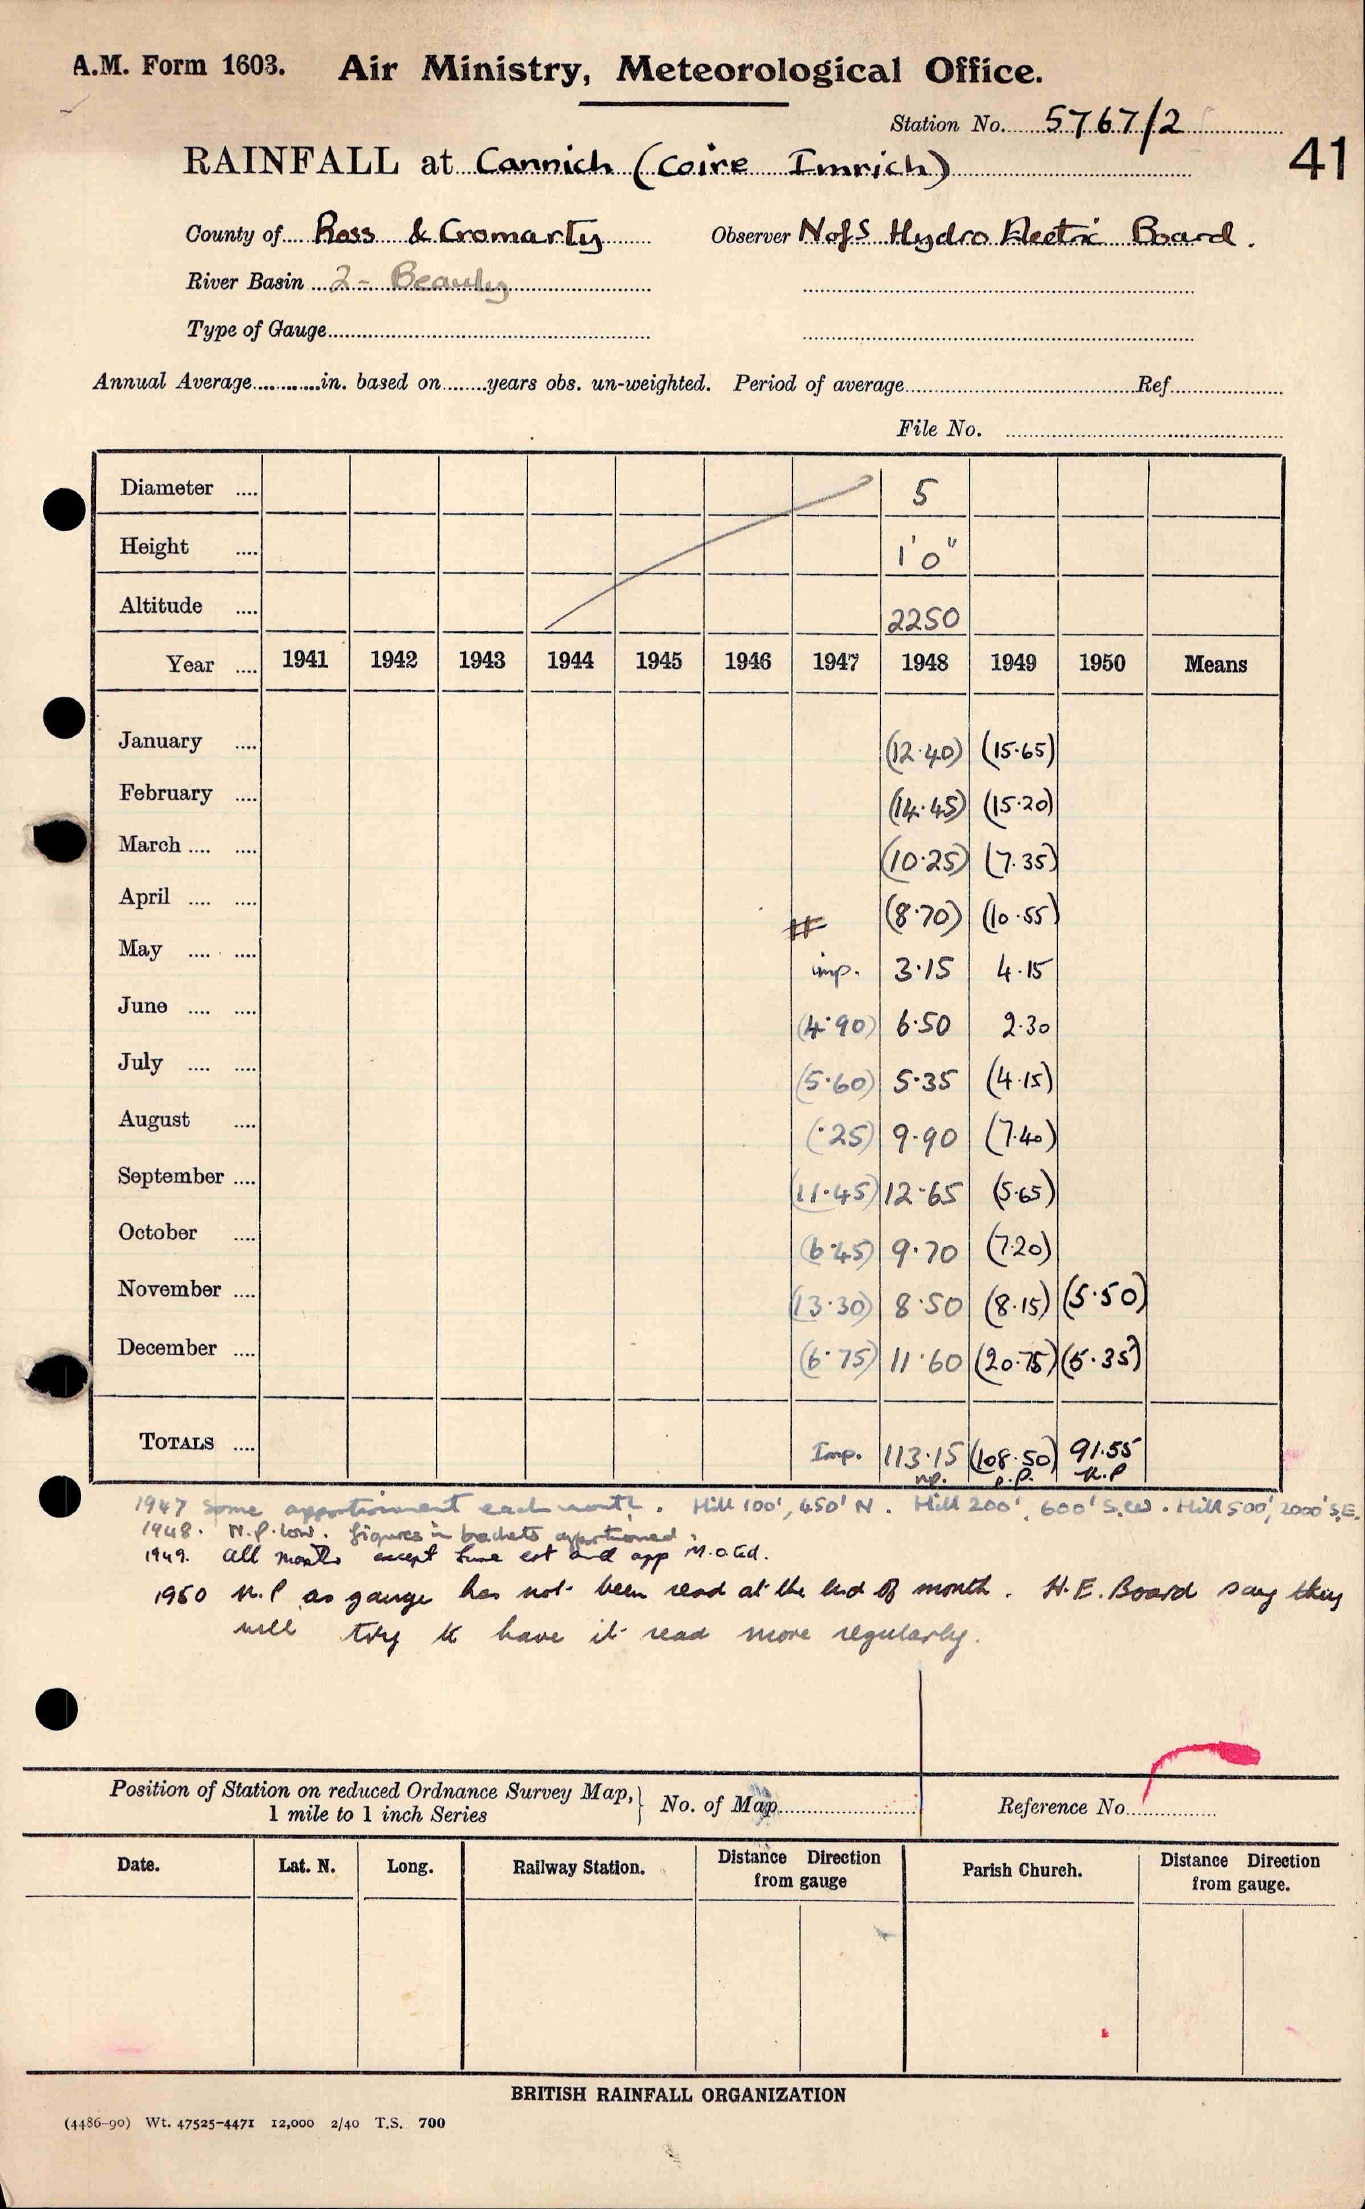 A.M. Form 1603. Air Ministry, Meteorological Office.
Station No. 5767/2
41
RAINFALL at Cannich (Coire Imrich)
County of Ross & Cromarty Observer NofS Hydro Electric Board.
River Basin 2 - Beauly
Type of Gauge
Annual Average in. based on years obs. un-weighted. Period of average Ref
File No.
Diameter .... 5
Height .... 1' 0"
Altitude .... 2250
Year .... 1941 1942 1943 1944 1945 1946 1947 1948 1949 1950 Means
January .... (12.40) (15.65)
February .... (14.45) (15.20)
March .... .... (10.25) (7.35)
April .... .... (8.70) (10.55)
May .... .... imp. 3.15 4.15
June .... .... (4.90) 6.50 2.30
July .... .... (5.60) 5.35 (4.15)
August .... (.25) 9.90 (7.40)
September .... (11.45) 12.65 (5.65)
October .... (6.45) 9.70 (7.20)
November .... (13.30) 8.50 (8.15) (5.50)
December .... (6.75) 11.60 (20.75) (5.35)
TOTALS .... Imp. 113.15 (108.50) 91.55
n.p. n.P
1947 some apportionment each month. Hill 100', 450' N. Hill 200', 600' S.W. Hill 500', 2000' S.E.
1948. N.P. low. figures in brackets apportioned.
1949. All months except June est and app M.O. Ed.
1950 n.P as gauge has not been read at the end of month. H.E. Board say they
will try to have it read more regularly.
Position of Station on reduced Ordnance Survey Map, 1 mile to 1 inch Series } No. of Map Reference No.
Date. Lat. N. Long. Railway Station. Distance Direction from gauge Parish Church. Distance Direction from gauge.
BRITISH RAINFALL ORGANIZATION
(4486-90) Wt. 47525-4471 12,000 2/40 T.S. 700